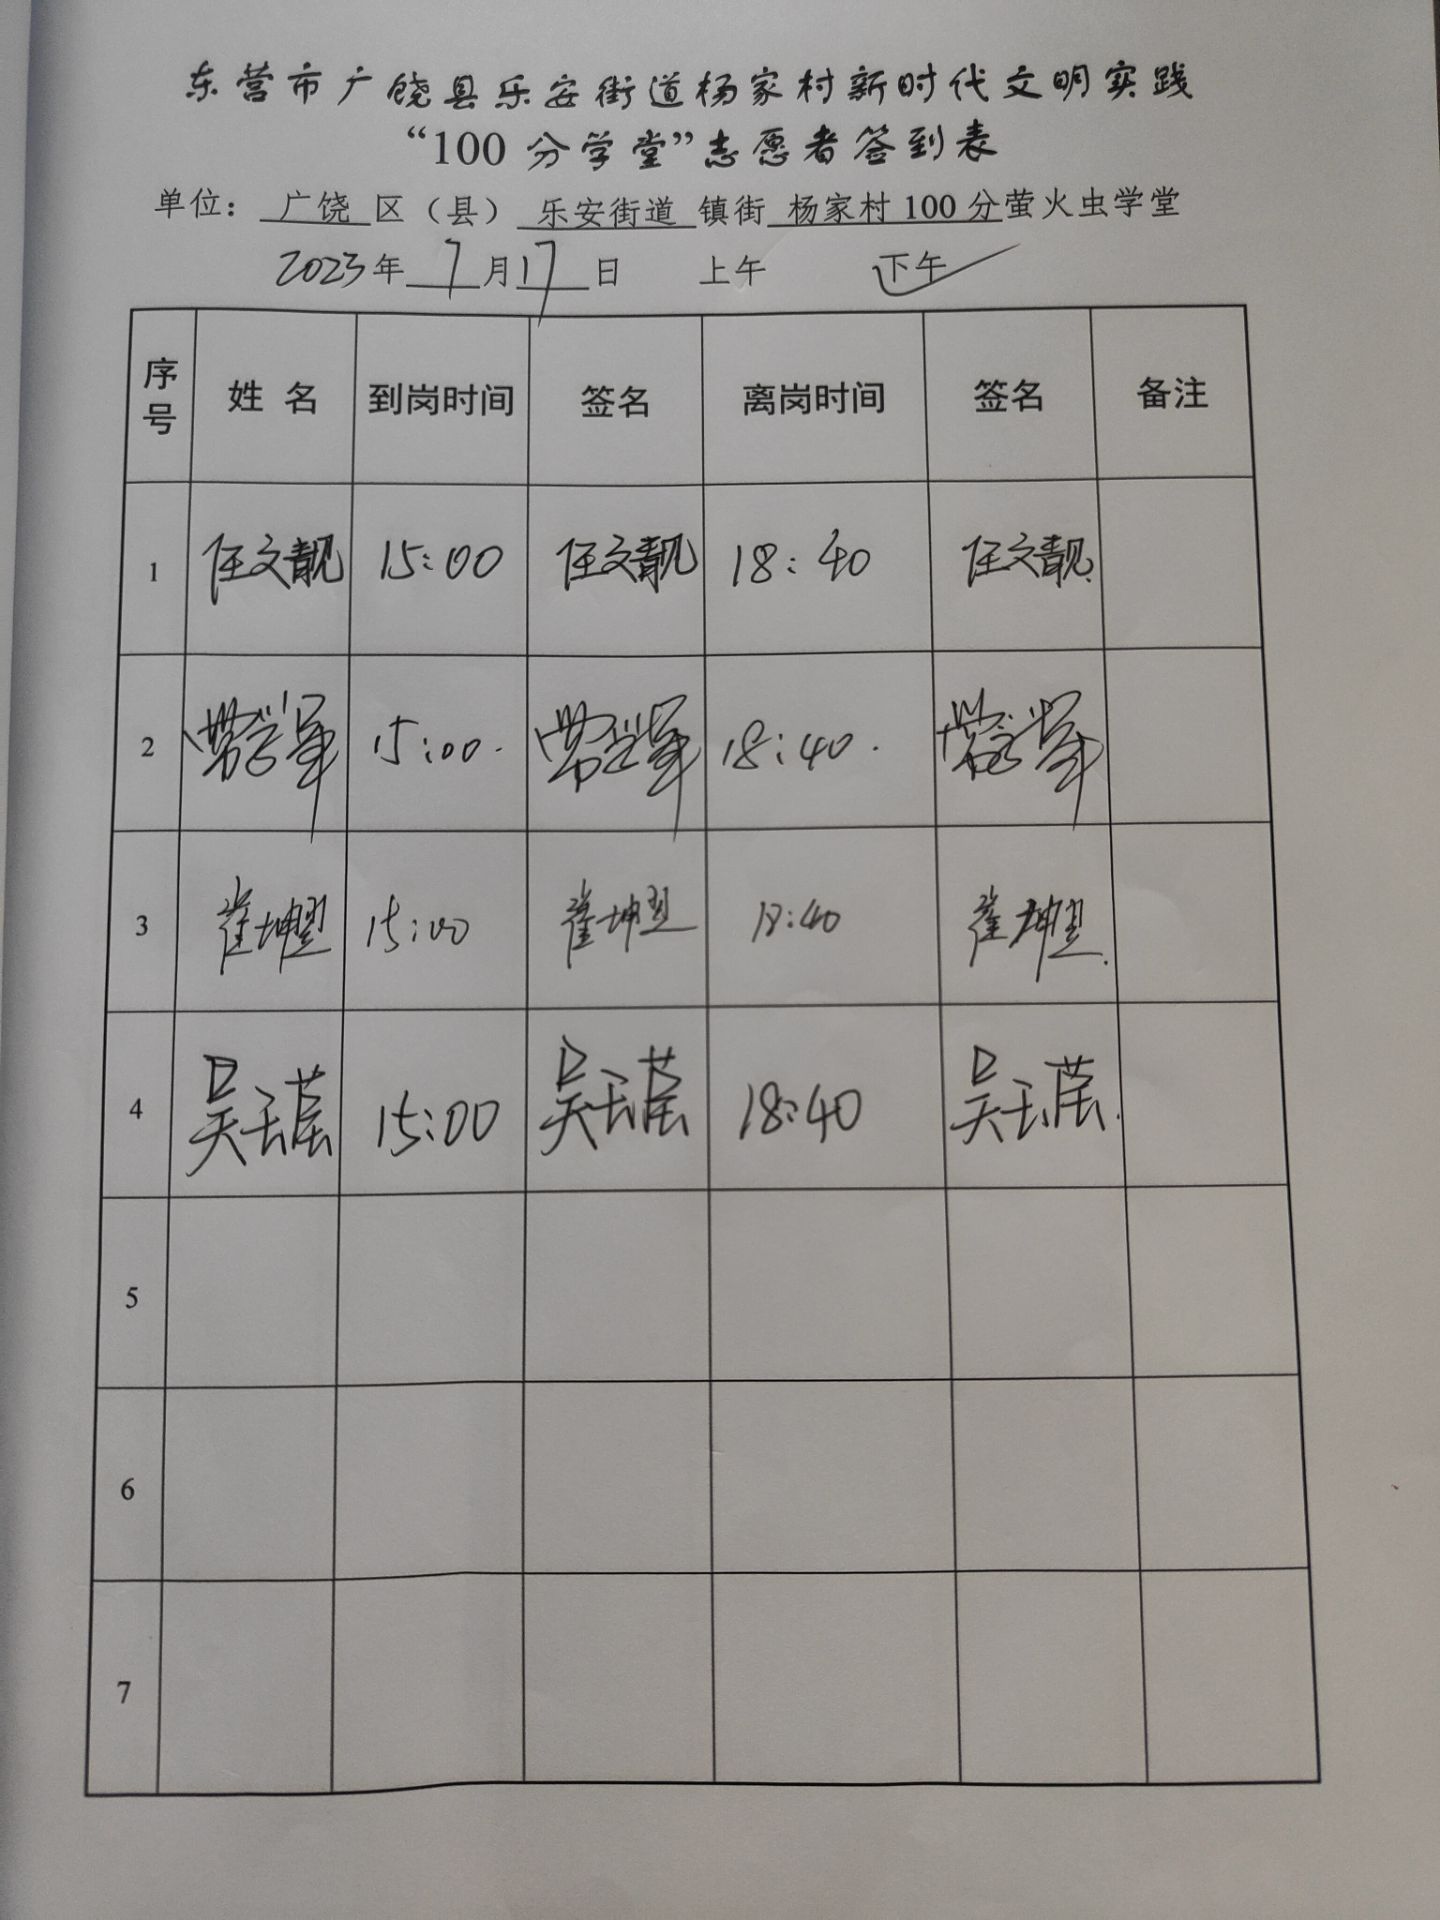 东营市广饶县乐安街道杨家村新时代文明实践
“100 分学堂”志愿者签到表
单位： 广饶 区（县） 乐安街道 镇街 杨家村 100 分萤火虫学堂
2023年 7 月 17 日 上午 下午
序号 姓 名 到岗时间 签名 离岗时间 签名 备注
1 任文靓 15:00 任文靓 18:40 任文靓
2 15:00. 18:40.
3 崔坤翌 15:00 崔坤翌 18:40 崔坤翌.
4 吴玉 15:00 吴玉 18:40 吴玉
5
6
7